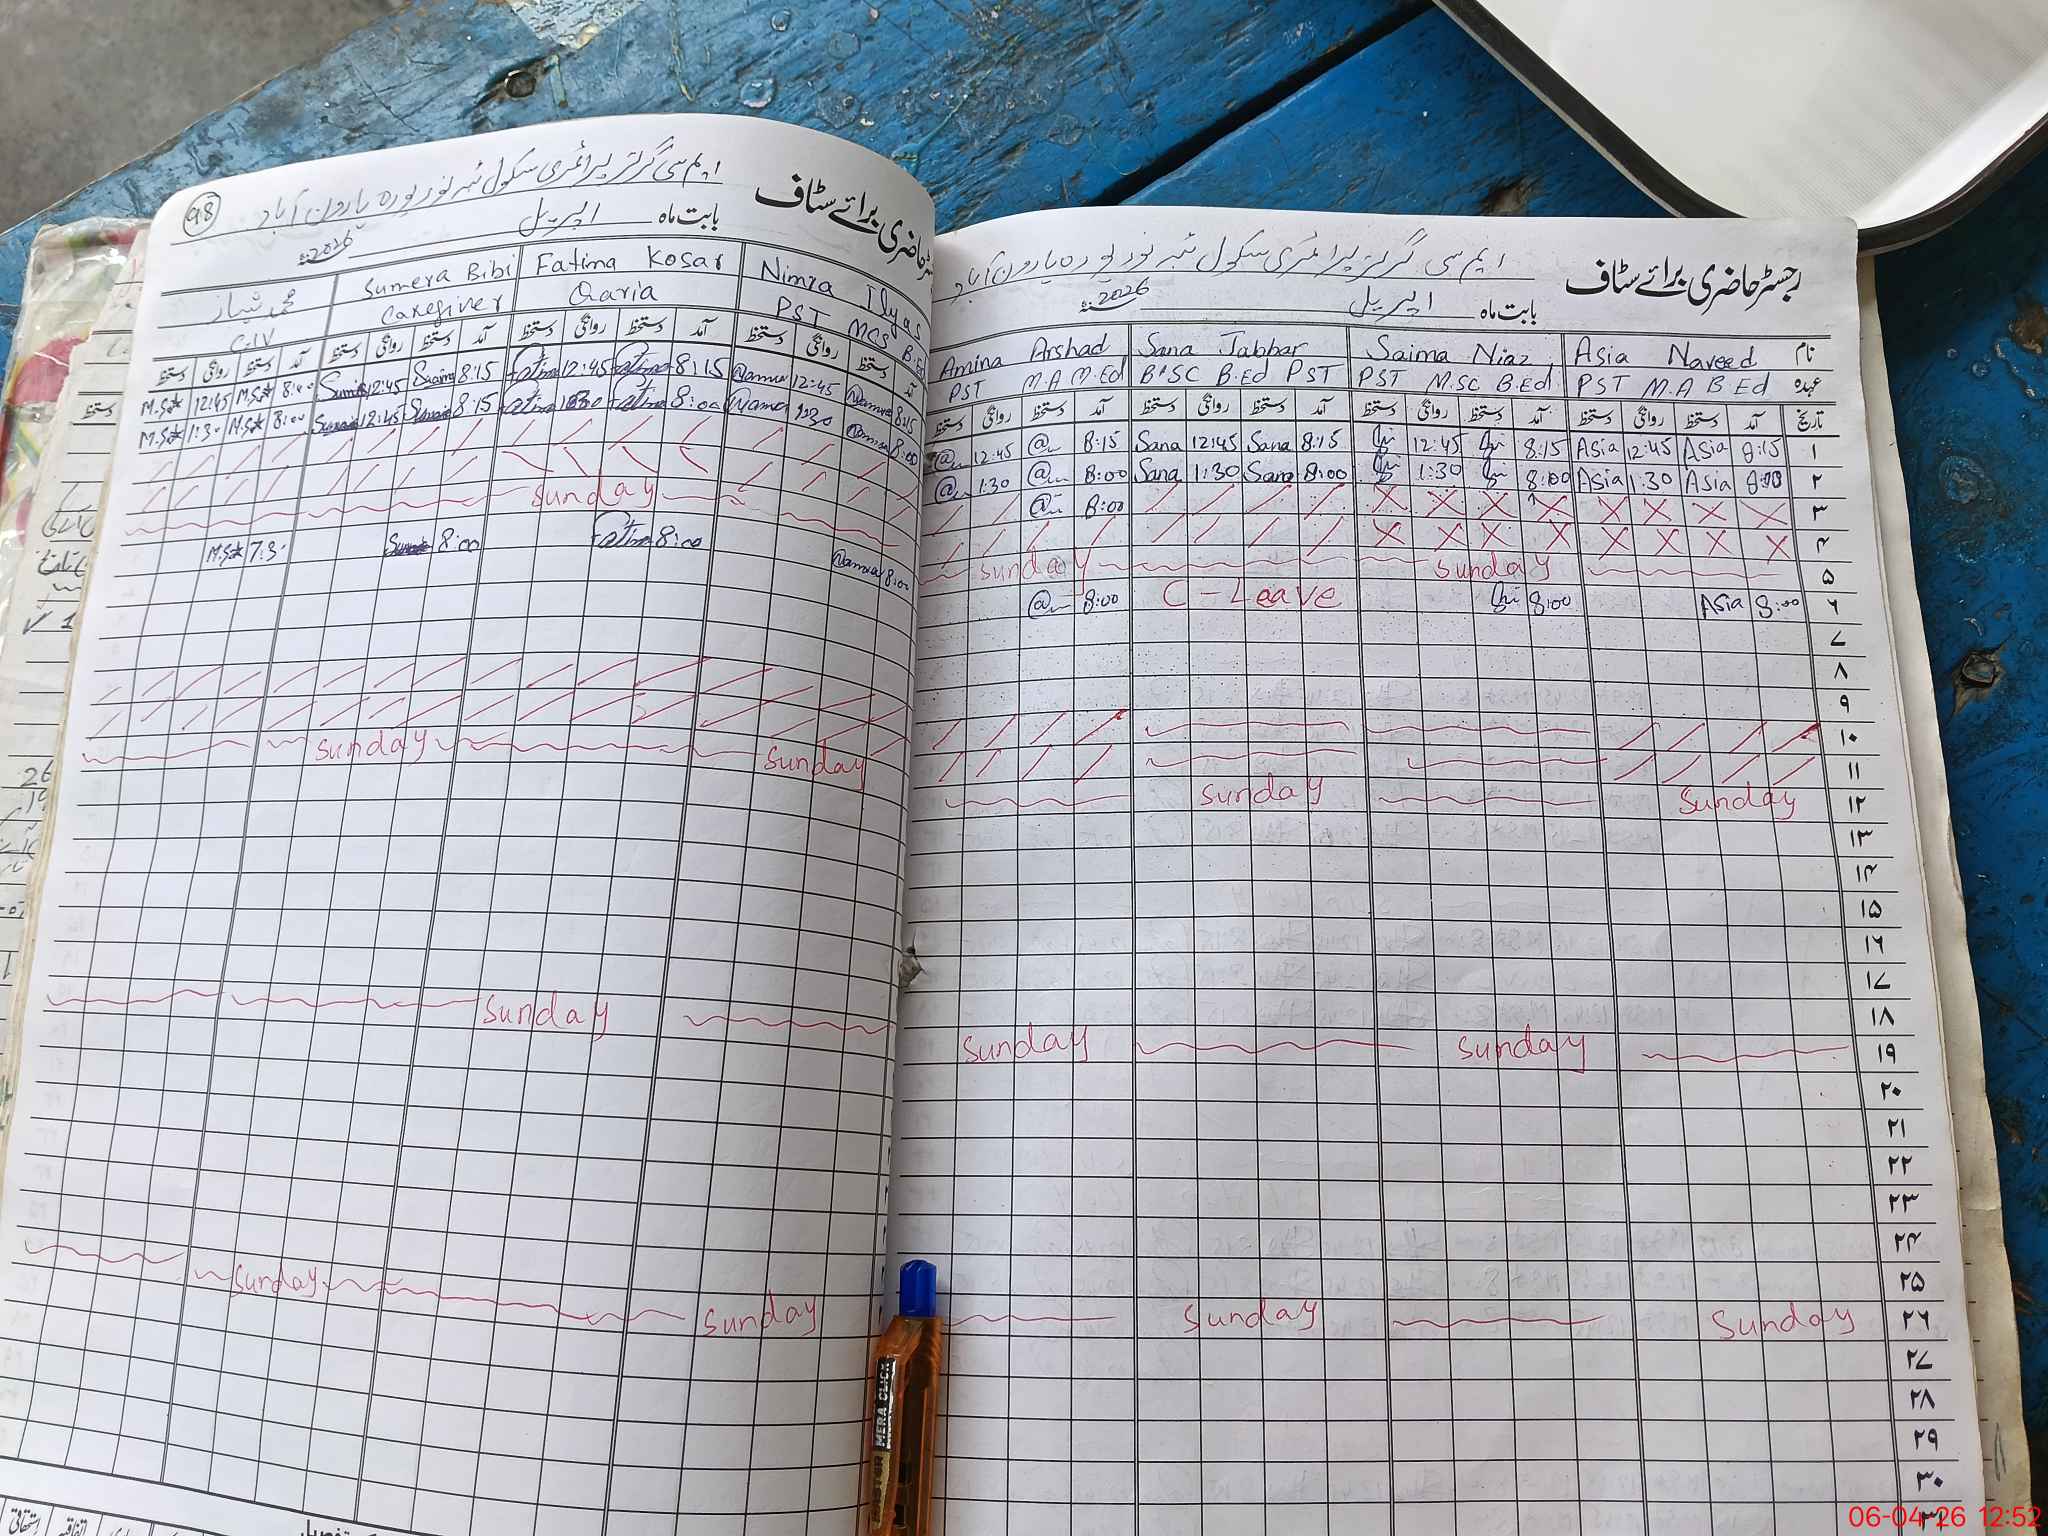 98
ایم سی گرلز پرائمری سکول ٹبہ نور پورہ ہارون آباد
رجسٹر حاضری برائے سٹاف
بابت ماہ اپریل 2026ء
محمد شہباز Sumera Bibi Fatima Kosar Nimra Ilyas
C-IV Caregiver Qaria PST MCS B.Ed
دستخط روانگی دستخط آمد دستخط روانگی دستخط آمد دستخط روانگی دستخط آمد دستخط روانگی دستخط آمد
12:45 8:00 12:45 8:15 Fatima 12:45 Fatima 8:15 Namra 12:45 Namra 8:15
1:30 8:00 12:45 8:15 Fatima Fatima 8:00 Namra 1:30 Namra 8:00
Sunday
7:30 8:00 Fatima 8:00 Namra 8:00
Sunday Sunday
Sunday
Sunday Sunday
ایم سی گرلز پرائمری سکول ٹبہ نور پورہ ہارون آباد
رجسٹر حاضری برائے سٹاف
بابت ماہ اپریل 2026ء
Amina Arshad Sana Jabbar Saima Niaz Asia Naveed نام
PST M.A M.Ed B.SC B.Ed PST PST M.SC B.Ed PST M.A B Ed عہدہ
دستخط روانگی دستخط آمد دستخط روانگی دستخط آمد دستخط روانگی دستخط آمد دستخط روانگی دستخط آمد تاریخ
12:45 8:15 Sana 12:45 Sana 8:15 12:45 8:15 Asia 12:45 Asia 8:15 ۱
1:30 8:00 Sana 1:30 Sana 8:00 1:30 8:00 Asia 1:30 Asia 8:00 ۲
8:00 ۳
۴
Sunday Sunday ۵
8:00 C-Leave 8:00 Asia 8:00 ۶
۷
۸
۹
۱۰
۱۱
Sunday Sunday ۱۲
۱۳
۱۴
۱۵
۱۶
۱۷
۱۸
Sunday Sunday ۱۹
۲۰
۲۱
۲۲
۲۳
۲۴
۲۵
Sunday Sunday ۲۶
۲۷
۲۸
۲۹
۳۰
۳۱
MERA CLICK
06-04-26 12:52